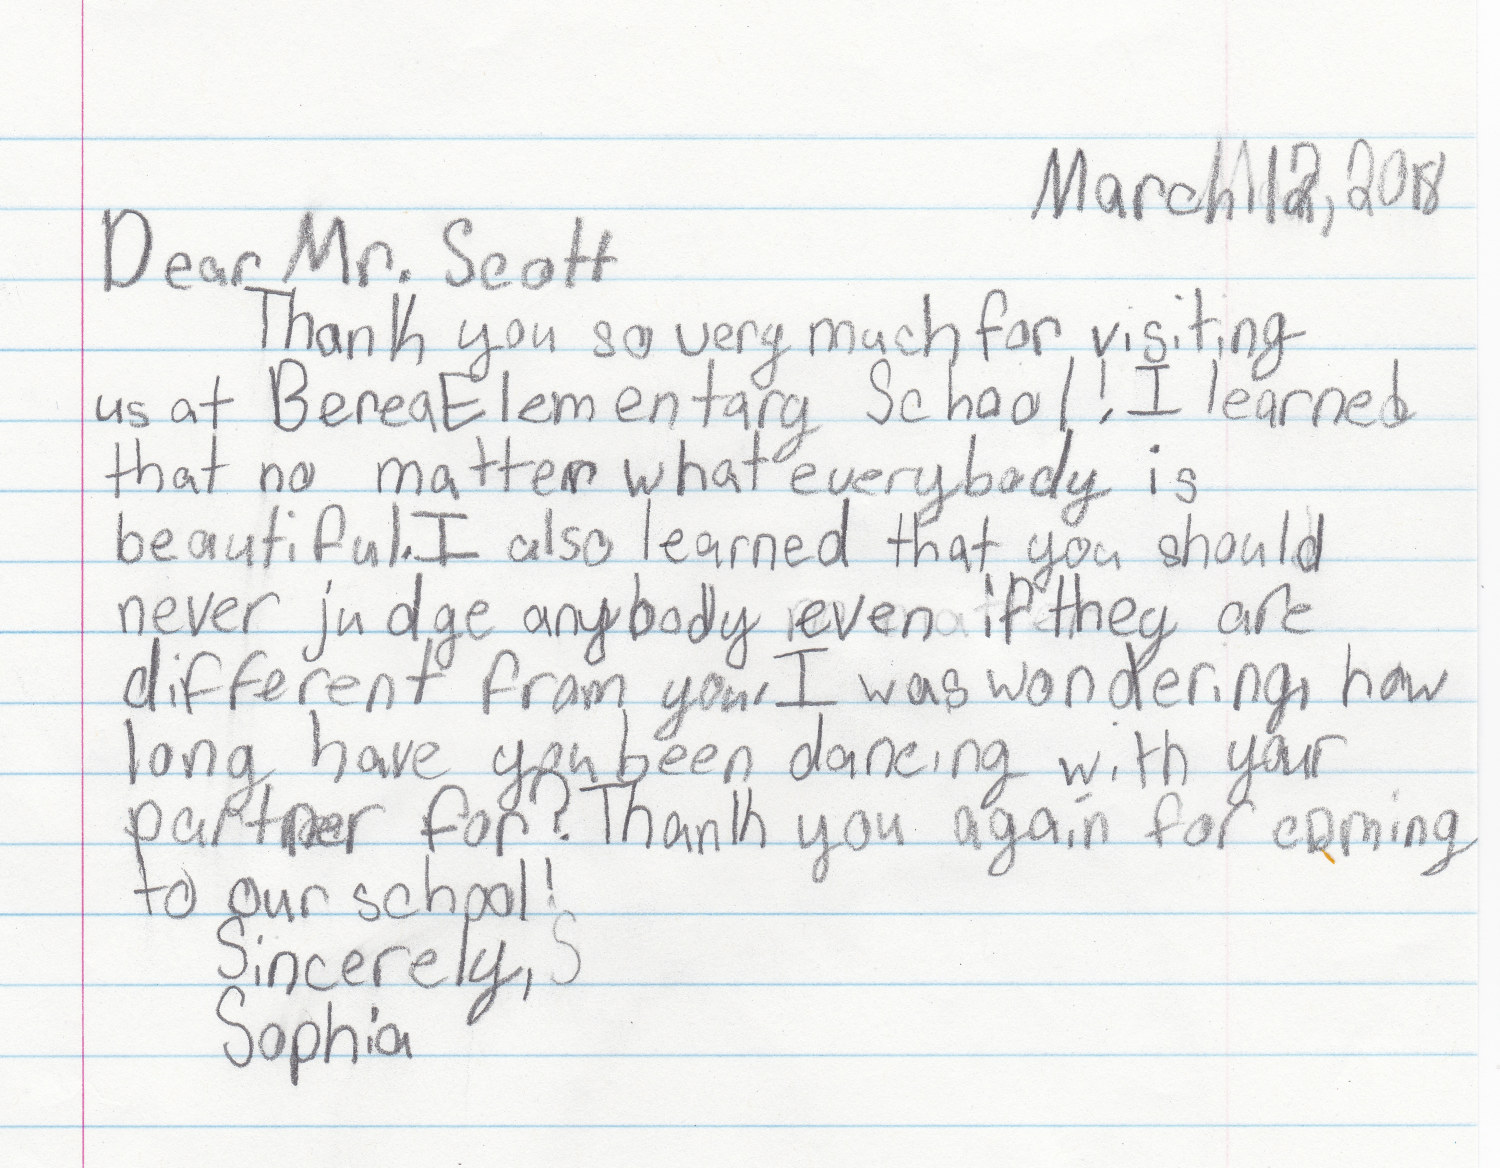 March 12, 2018
Dear Mr. Scott
Thank you so very much for visiting
us at Berea Elementary School! I learned
that no matter what everybody is
beautiful. I also learned that you should
never judge anybody even if they are
different from you. I was wondering, how
long have you been dancing with your
partner for? Thank you again for coming
to our school!
Sincerely, S
Sophia